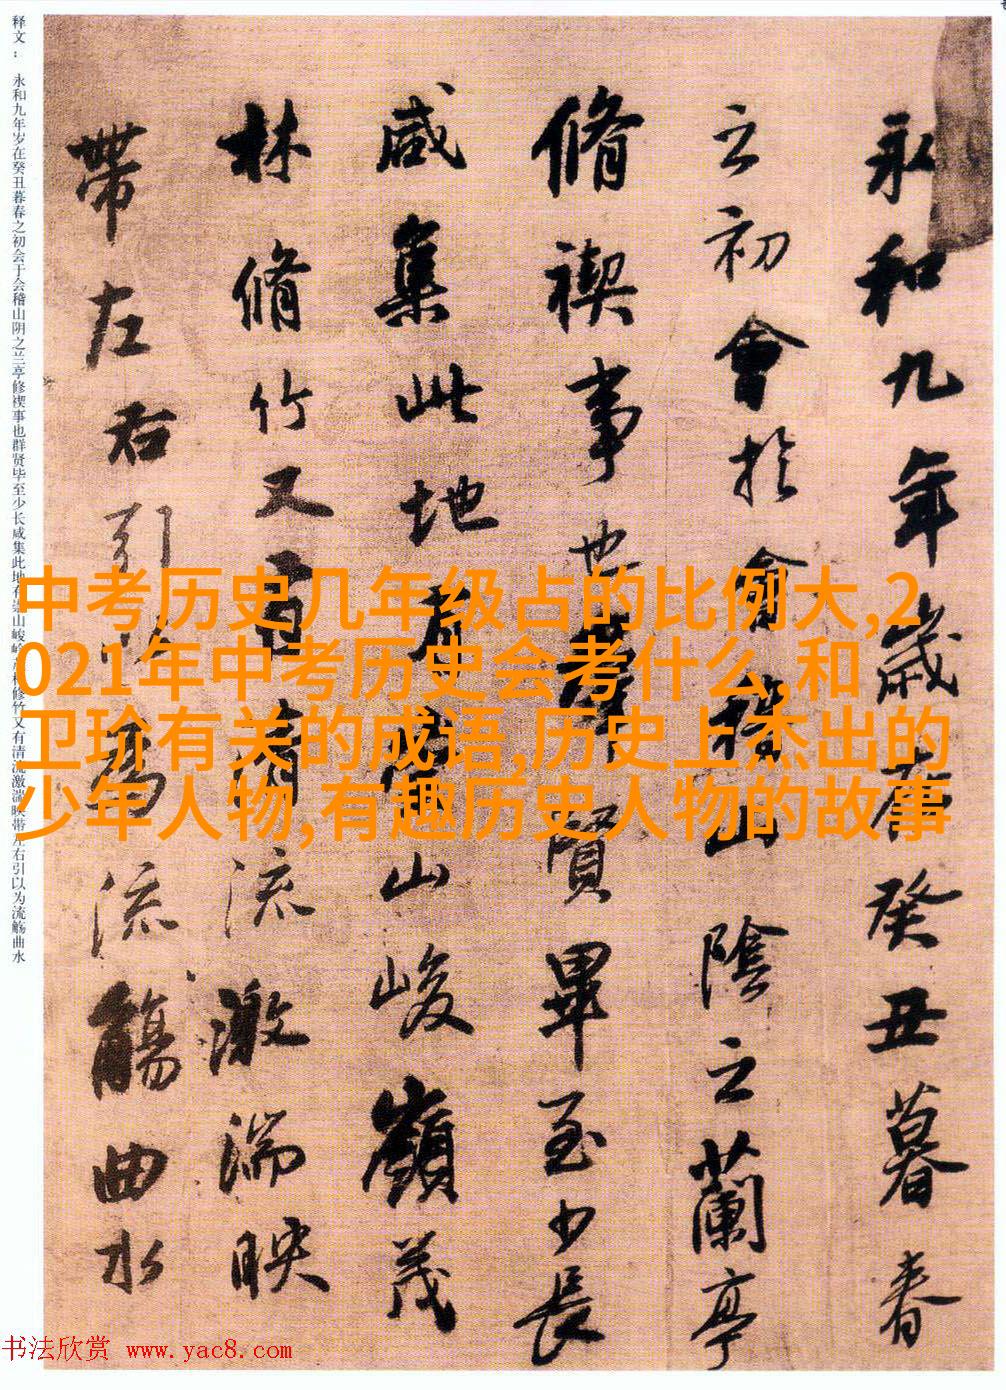 永和九年歲在癸丑暮春
之初會於會稽山陰之蘭亭
脩禊事也群賢畢至少長
咸集此地有崇山峻嶺茂
林脩竹又有清流激湍映
帶左右引以為流觴曲水
释文： 永和九年岁在癸丑暮春之初会于会稽山阴之兰亭修禊事也群贤毕至少长咸集此地有崇山峻岭茂林修竹又有清流激湍映带左右引以为流觞曲水
中考历史几年级占的比例大,2
021年中考历史会考什么,和
卫玠有关的成语,历史上杰出的
少年人物,有趣历史人物的故事
书法欣赏 www.yac8.com